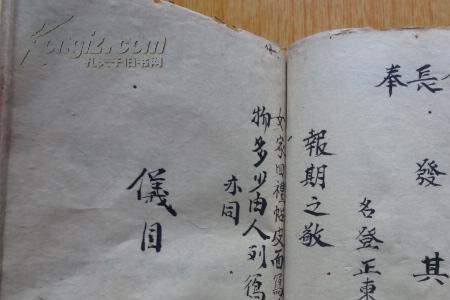 長
奉
發
其
名登正東
報期之敬
女家回禮帖皮面寫
物多少由人列寫
亦同
儀目
Kongfz.com
孔夫子旧书网